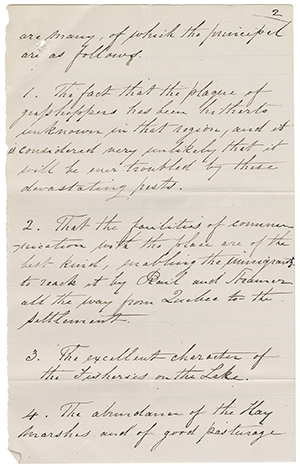 2
are many, of which the principal
are as follows.
1. The fact that the plague of
grasshoppers has been hitherto
unknown in that region, and it
is considered very unlikely that it
will be ever troubled by these
devastating pests.
2. That the facilities of commu-
nication with the place are of the
best kind, enabling the immigrants
to reach it by Rail and Steamer
all the way from Quebec to the
settlement.
3. The excellent character of
the Fisheries on the Lake.
4. The abundance of the Hay
marshes and of good pasturage